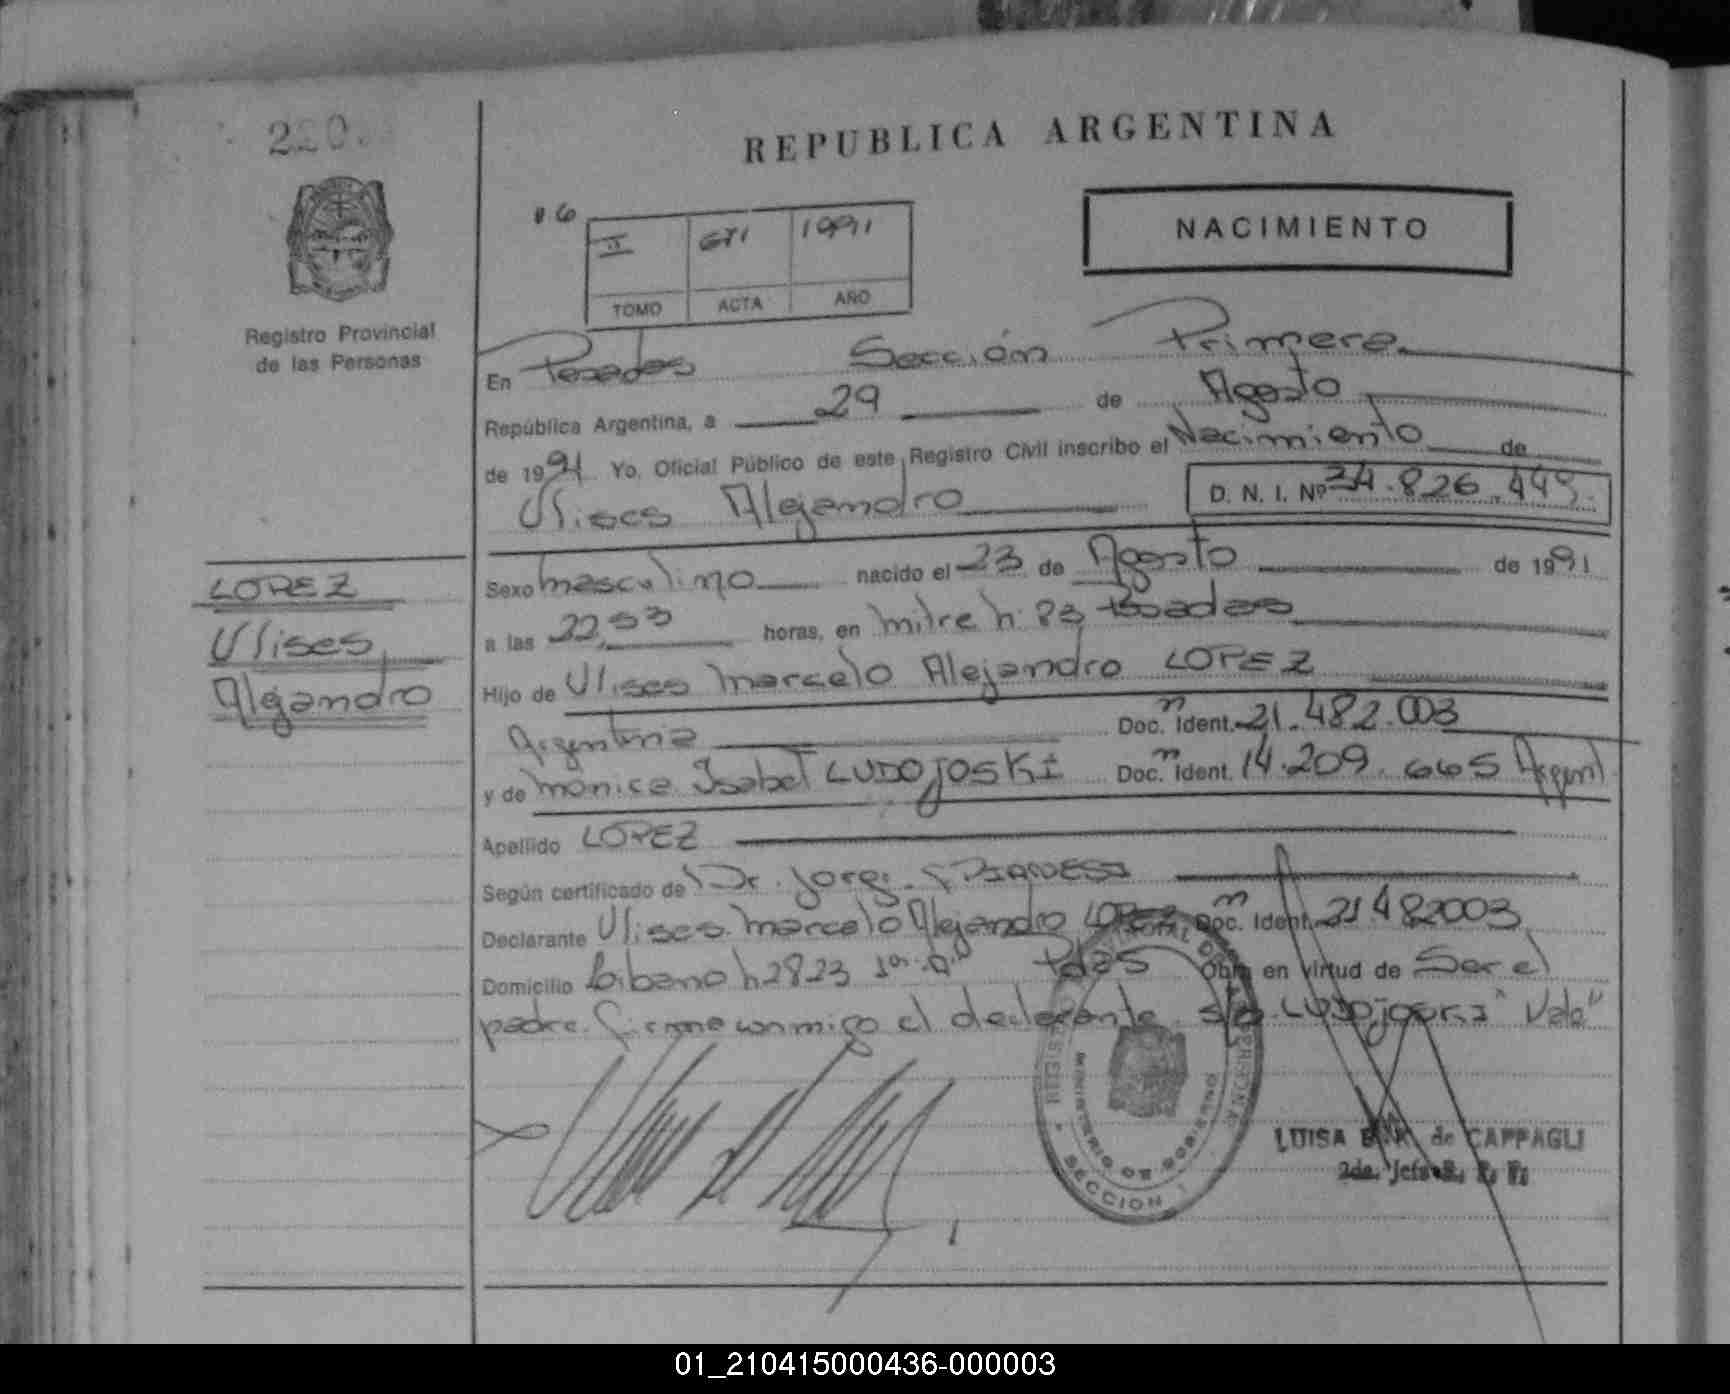 220
REPUBLICA ARGENTINA
NACIMIENTO
II 671 1991
TOMO ACTA AÑO
Registro Provincial
de las Personas
En Posadas Sección Primera
República Argentina, a 29 de Agosto
de 1991 Yo, Oficial Público de este Registro Civil inscribo el Nacimiento de
Ulises Alejandro D. N. I. Nº 34.826.449
LOPEZ
Ulises
Alejandro
Sexo masculino nacido el 23 de Agosto de 1991
a las 22,53 horas, en mitre n: 83 Posadas
Hijo de Ulises Marcelo Alejandro LOPEZ
Argentina Doc. Ident. 21.482.003
y de Monica Isabel LUDOJOSKI Doc. Ident. 14.209.665 Argent
Apellido LOPEZ
Según certificado de Dr. Jorge
Declarante Ulises Marcelo Alejandro LOPEZ Doc. Ident. 21482003
Domicilio Libano n 2823 Pdas Obra en virtud de Ser el
padre. firma conmigo el declarante s/r. LUDOJOSKI "Vale"
REGISTRO PROVINCIAL DE LAS PERSONAS
MINISTERIO DE GOBIERNO
SECCION 1
LUISA de CAPPAGLI
2da. Jefa R. P. P.
01_210415000436-000003